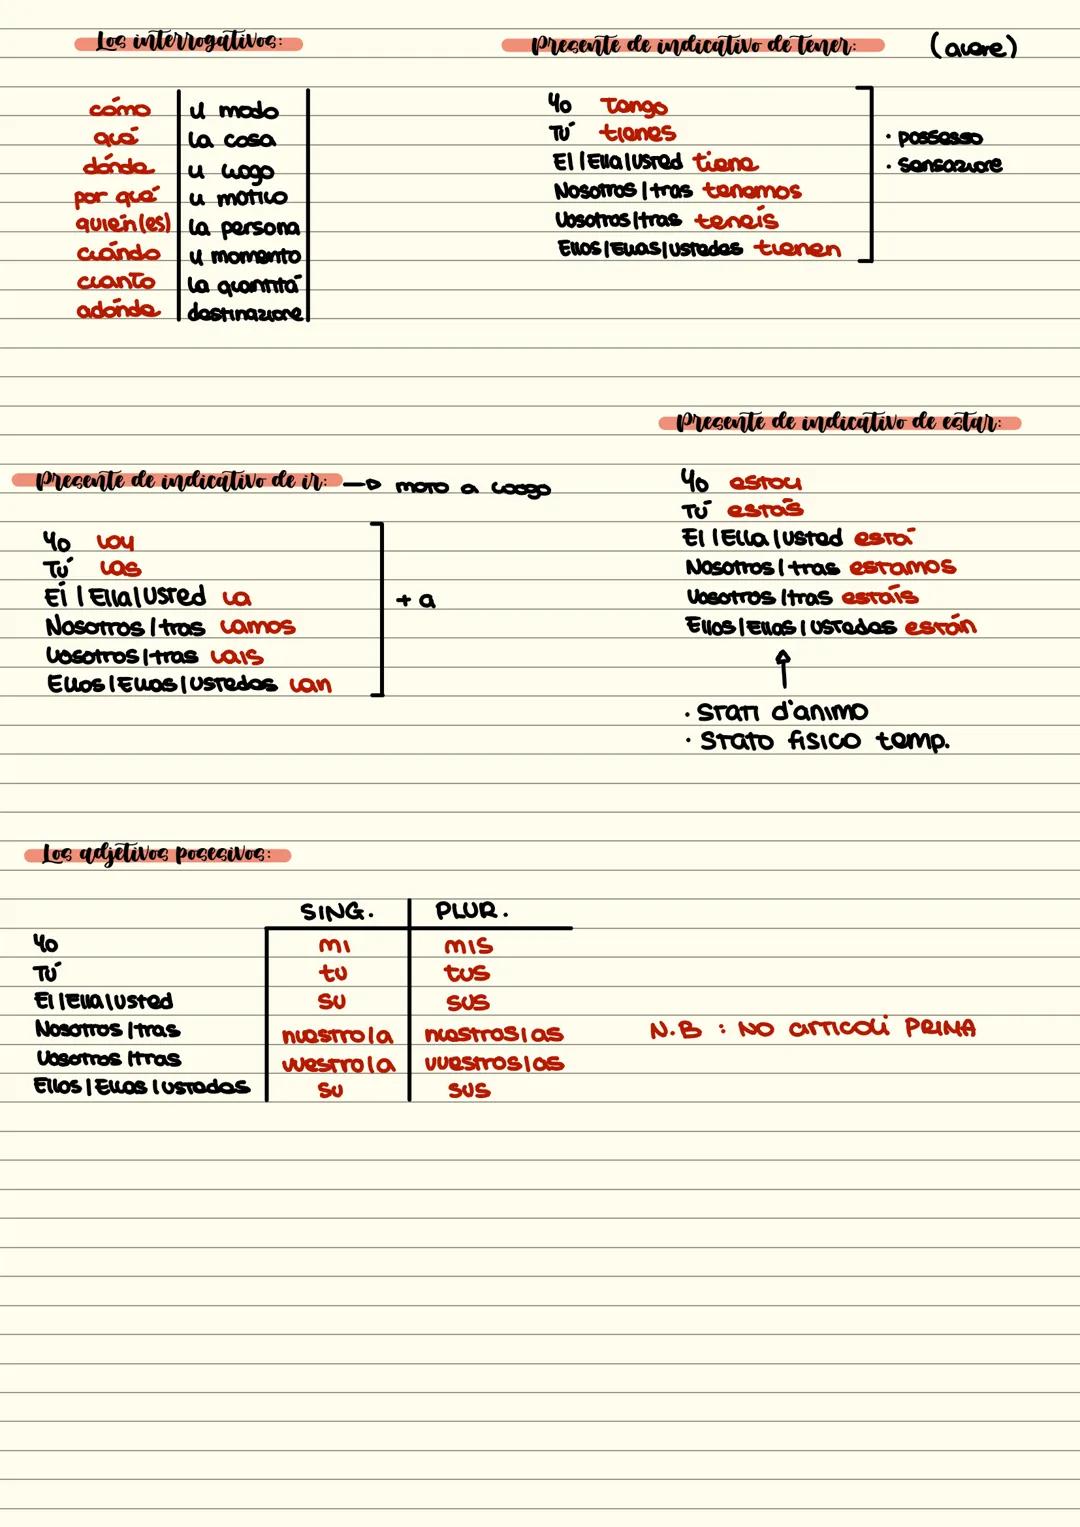 Los interrogativos:
cómo il modo
qué la cosa
dónde il luogo
por qué il motivo
quién(es) la persona
cuándo il momento
cuanto la quantità
adónde destinazione
Presente de indicativo de tener: (avere)
Yo tengo
Tú tienes
El | Ella | Usted tiene
Nosotros | tras tenemos
Vosotros | tras tenéis
Ellos | Ellas | Ustedes tienen
• possesso
• sensazione
Presente de indicativo de estar:
Yo estoy
Tú estás
El | Ella | Usted está
Nosotros | tras estamos
Vosotros | tras estaís
Ellos | Ellas | Ustedes están
• Stati d'animo
• Stato fisico temp.
Presente de indicativo de ir: → moto a luogo
Yo voy
Tú vas
Él | Ella | Usted va
Nosotros | tras vamos
Vosotros | tras vais
Ellos | Ellas | Ustedes van
+ a
Los adjetivos posesivos:
SING. PLUR.
Yo mi mis
Tú tu tus
El | Ella | Usted su sus
Nosotros | tras nuestro|a nuestros|as
Vosotros | tras vuestro|a vuestros|as
Ellos | Ellas | Ustedes su sus
N.B : NO articoli PRIMA